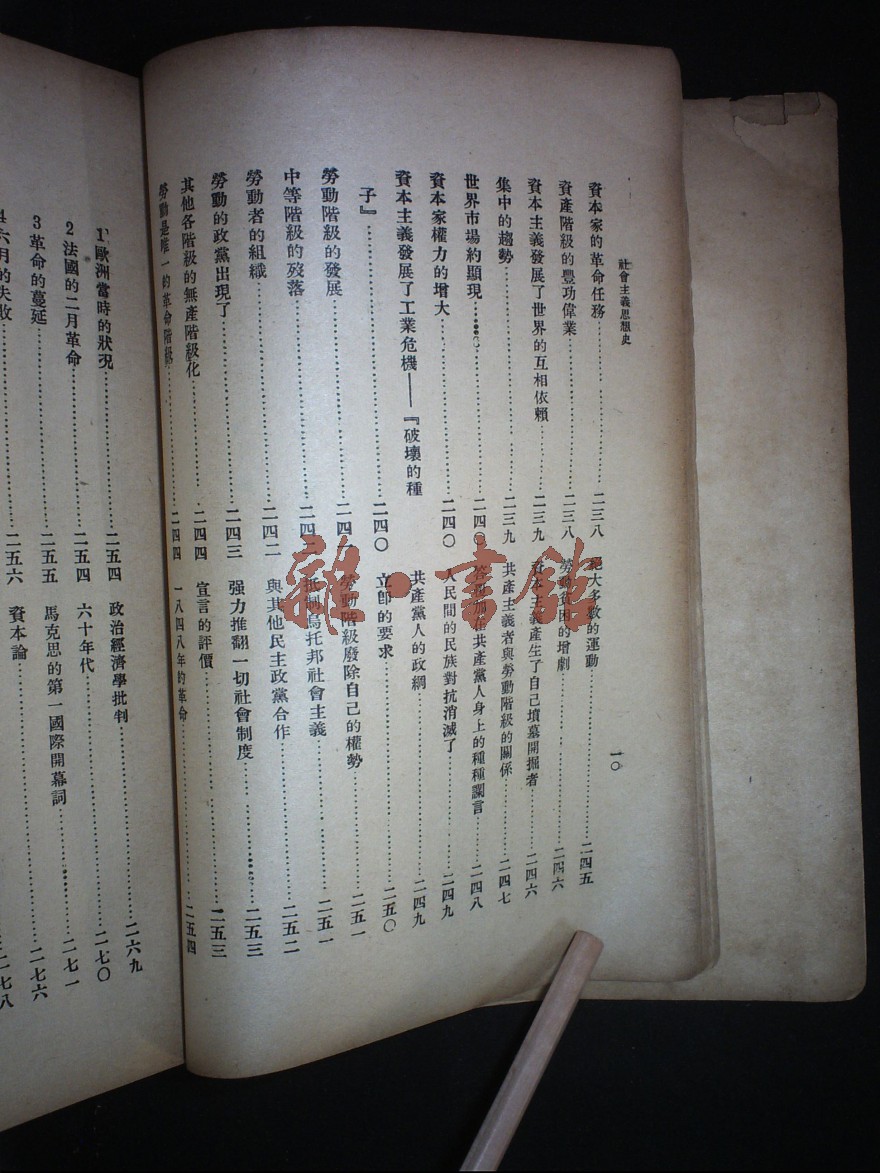 社會主義思想史
一〇
資本家的革命任務……二三八
資產階級的豐功偉業……二三八
資本主義發展了世界的互相依賴……二三九
集中的趨勢……二三九
世界市場約顯現……二四〇
資本家權力的增大……二四〇
資本主義發展了工業危機——『破壞的種
子』……二四〇
勞動階級的發展……二四
中等階級的歿落……二四二
勞動者的組織……二四二
勞動的政黨出現了……二四三
其他各階級的無產階級化……二四四
勞動是唯一的革命階級……二四四
大多數的運動……二四五
勞動貧困的增劇……二四六
資本主義產生了自己墳墓開掘者……二四六
共產主義者與勞動階級的關係……二四七
答覆加在共產黨人身上的種種讕言……二四八
人民間的民族對抗消滅了……二四九
共產黨人的政綱……二四九
立卽的要求……二五〇
勞動階級廢除自己的權勢……二五一
抵制烏托邦社會主義……二五一
與其他民主政黨合作……二五二
强力推翻一切社會制度……二五三
宣言的評價……二五三
一八四八年的革命……二五四
1 歐洲當時的狀况……二五四
2 法國的二月革命……二五四
3 革命的蔓延……二五五
4 六月的失敗……二五六
政治經濟學批判……二六九
六十年代……二七〇
馬克思的第一國際開幕詞……二七一
資本論……二七六
二七八
雜·書館